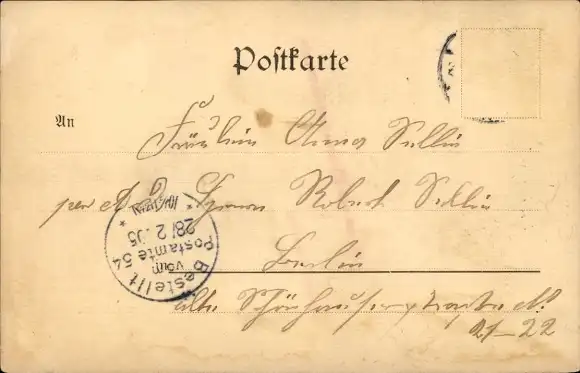 Postkarte
An
Fräulein Anna Sellin
per Ad. Herrn Robert Sellin
Berlin
alte Schönhauserstraße №
21–22
Bestellt
vom
Postamte 54
28/2.05